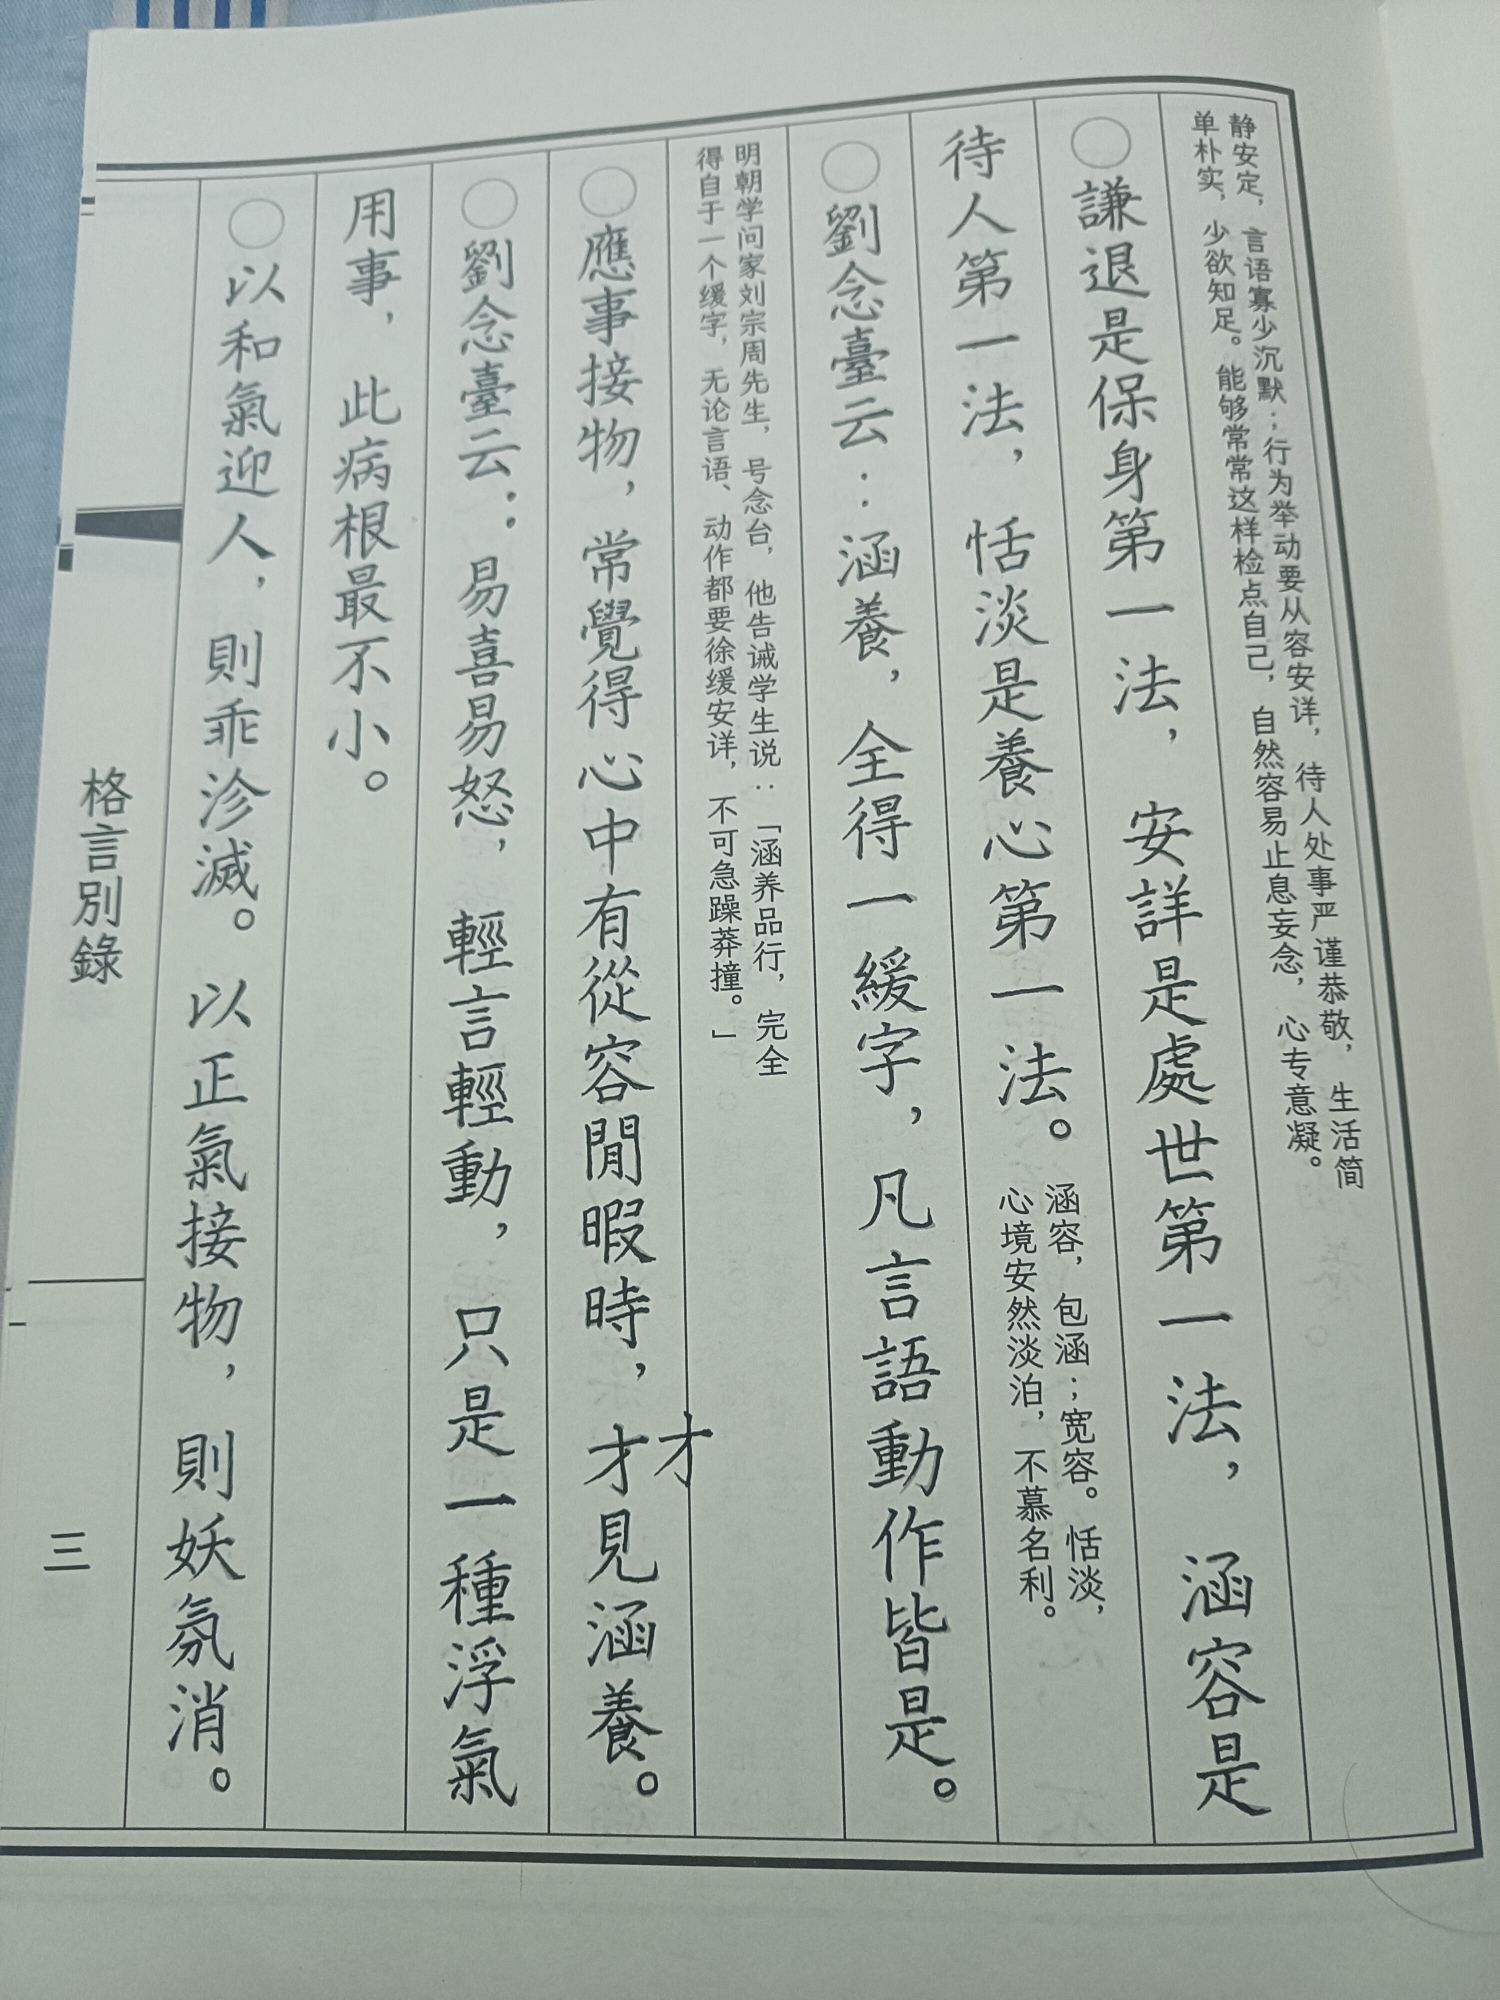 静安定，言语寡少沉默；行为举动要从容安详，待人处事严谨恭敬，生活简
单朴实，少欲知足。能够常常这样检点自己，自然容易止息妄念，心专意凝。
○謙退是保身第一法，安詳是處世第一法，涵容是
待人第一法，恬淡是養心第一法。
涵容，包涵；宽容。恬淡，
心境安然淡泊，不慕名利。
○劉念臺云：涵養，全得一緩字，凡言語動作皆是。
明朝学问家刘宗周先生，号念台，他告诫学生说：「涵养品行，完全
得自于一个缓字，无论言语、动作都要徐缓安详，不可急躁莽撞。」
○應事接物，常覺得心中有從容閒暇時，才見涵養。
才
○劉念臺云：易喜易怒，輕言輕動，只是一種浮氣
用事，此病根最不小。
○以和氣迎人，則乖沴滅。以正氣接物，則妖氛消。
格言別錄
三